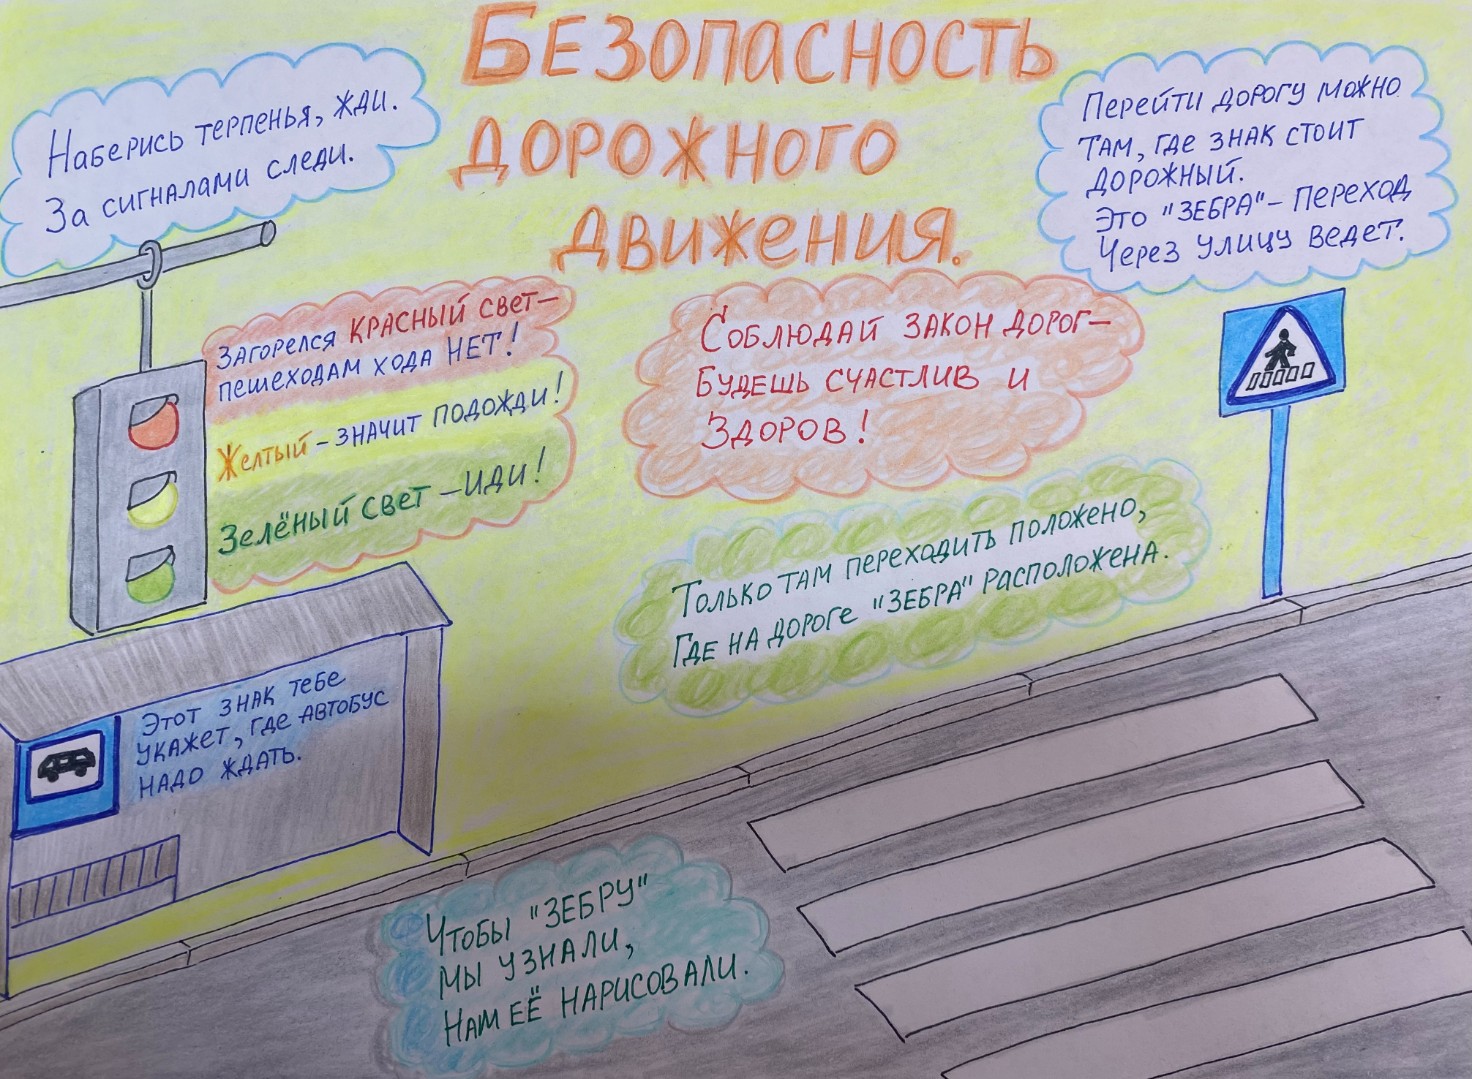 Безопасность
дорожного
движения.
Наберись терпенья, жди.
За сигналами следи.
Перейти дорогу можно
Там, где знак стоит
дорожный.
Это "зебра" - переход
Через улицу ведет.
Загорелся красный свет —
пешеходам хода нет!
Желтый - значит подожди!
Зелёный свет - иди!
Соблюдай закон дорог —
Будешь счастлив и
Здоров!
Только там переходить положено,
Где на дороге "зебра" расположена.
Этот знак тебе
укажет, где автобус
надо ждать.
Чтобы "зебру"
мы узнали,
Нам её нарисовали.